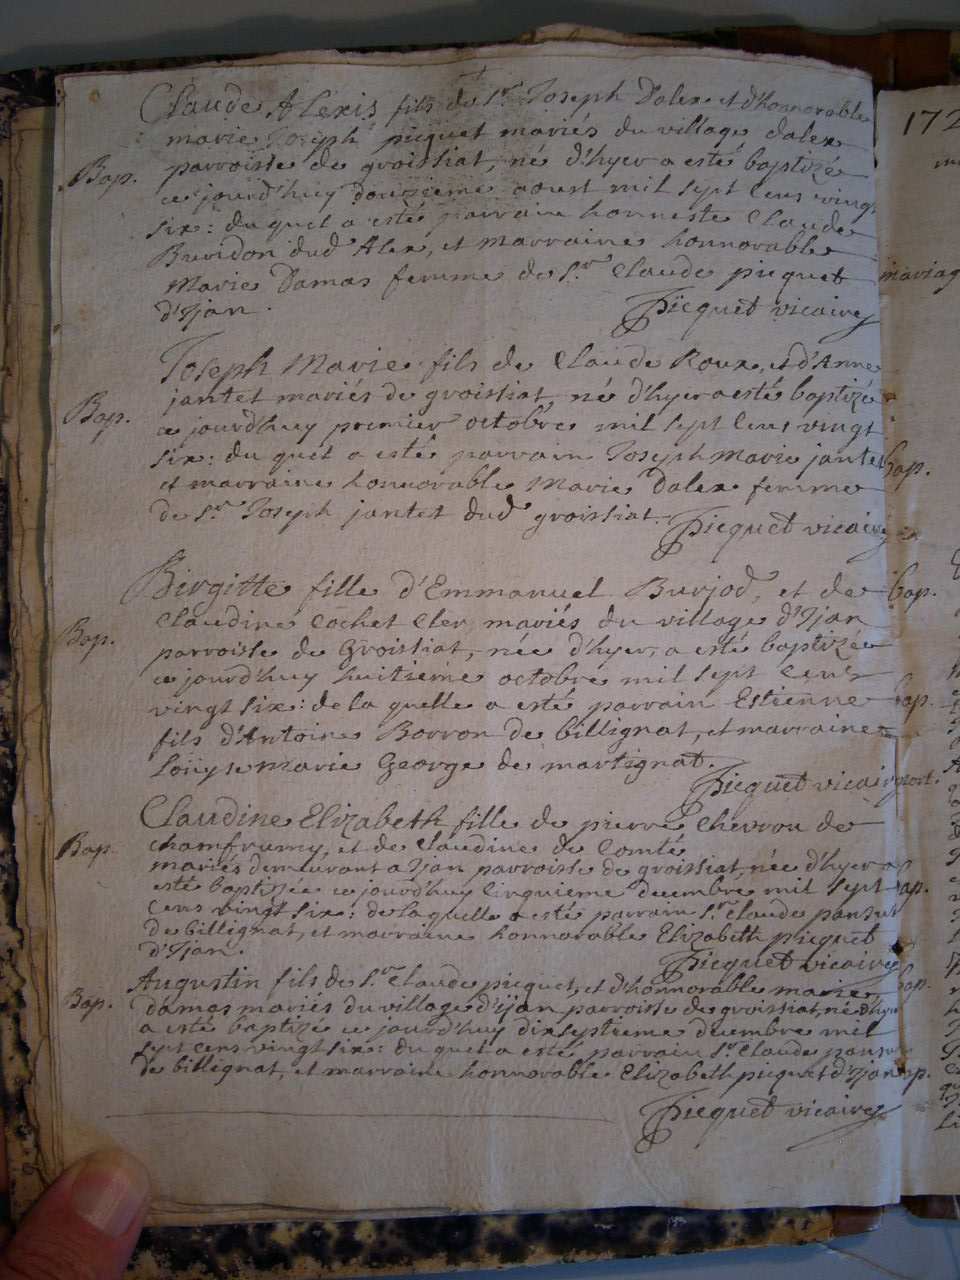 Claude Alexis fils de Sr Joseph Dalex et d'honnorable
marie Joseph picquet mariés du village dalex
Bap. parroisse de groissiat, né d'hyer a esté baptizé
ce jourd'huy douzieme aoust mil sept cens vingt
six: duquel a esté parrain honneste Claude
Buridon dud Alex, et marraine honnorable
Marie Damas femme de Sr Claude picquet
d'Ijan. Picquet vicaire
Joseph Marie fils de Claude Roux, et d'Anne
jantet mariés de groissiat, né d'hyer a esté baptizé
Bap. ce jourd'huy premier octobre mil sept cens vingt
six: du quel a esté parrain Joseph Marie jantet
et marraine honnorable Marie Dalex femme
de Sr Joseph jantet dud groissiat. Picquet vicaire
Birgitte fille d'Emmanuel Burjod, et de
Claudine Cochet Cler mariés du village d'Ijan
Bap. parroisse de Groissiat, née d'hyer, a esté baptizée
ce jourd'huy huitieme octobre mil sept cens
vingt six: de la quelle a esté parrain Estienne
fils d'Antoine Borron de billignat, et marraine
Loüyse marie George de martignat.
Picquet vicaire
Claudine Elizabeth fille de pierre Chevrou de
Bap. chamfrumy, et de Claudine de Comte
mariés demeurant a Ijan parroisse de groissiat, née d'hyer a
esté baptizée ce jourd'huy cinquieme decembre mil sept
cens vingt six: de laquelle a esté parrain Sr Claude pansut
de billignat, et marraine honnorable Elizabeth picquet
d'Ijan. Picquet vicaire
Augustin fils de Sr Claude picquet, et d'honnorable marie
Bap. damas mariés du village d'ijan parroisse de groissiat, né d'hyer
a esté baptizé ce jourd'huy dix septieme decembre mil
sept cens vingt six: du quel a esté parrain Sr Claude pansut
de billignat, et marraine honnorable Elizabeth picquet d'Ijan
Picquet vicaire
172
mariag
bap.
bap.
bap.
mort.
bap.
bap.
bap.